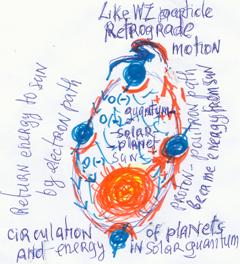 Like WZ particle
Retrograde
motion
0(-)
quantum
0(-)
solar
planet
0(-)
sun
Return energy to sun
by electron path
proton - positron path
became energy from sun
circulation of planets
and energy in solar quantum